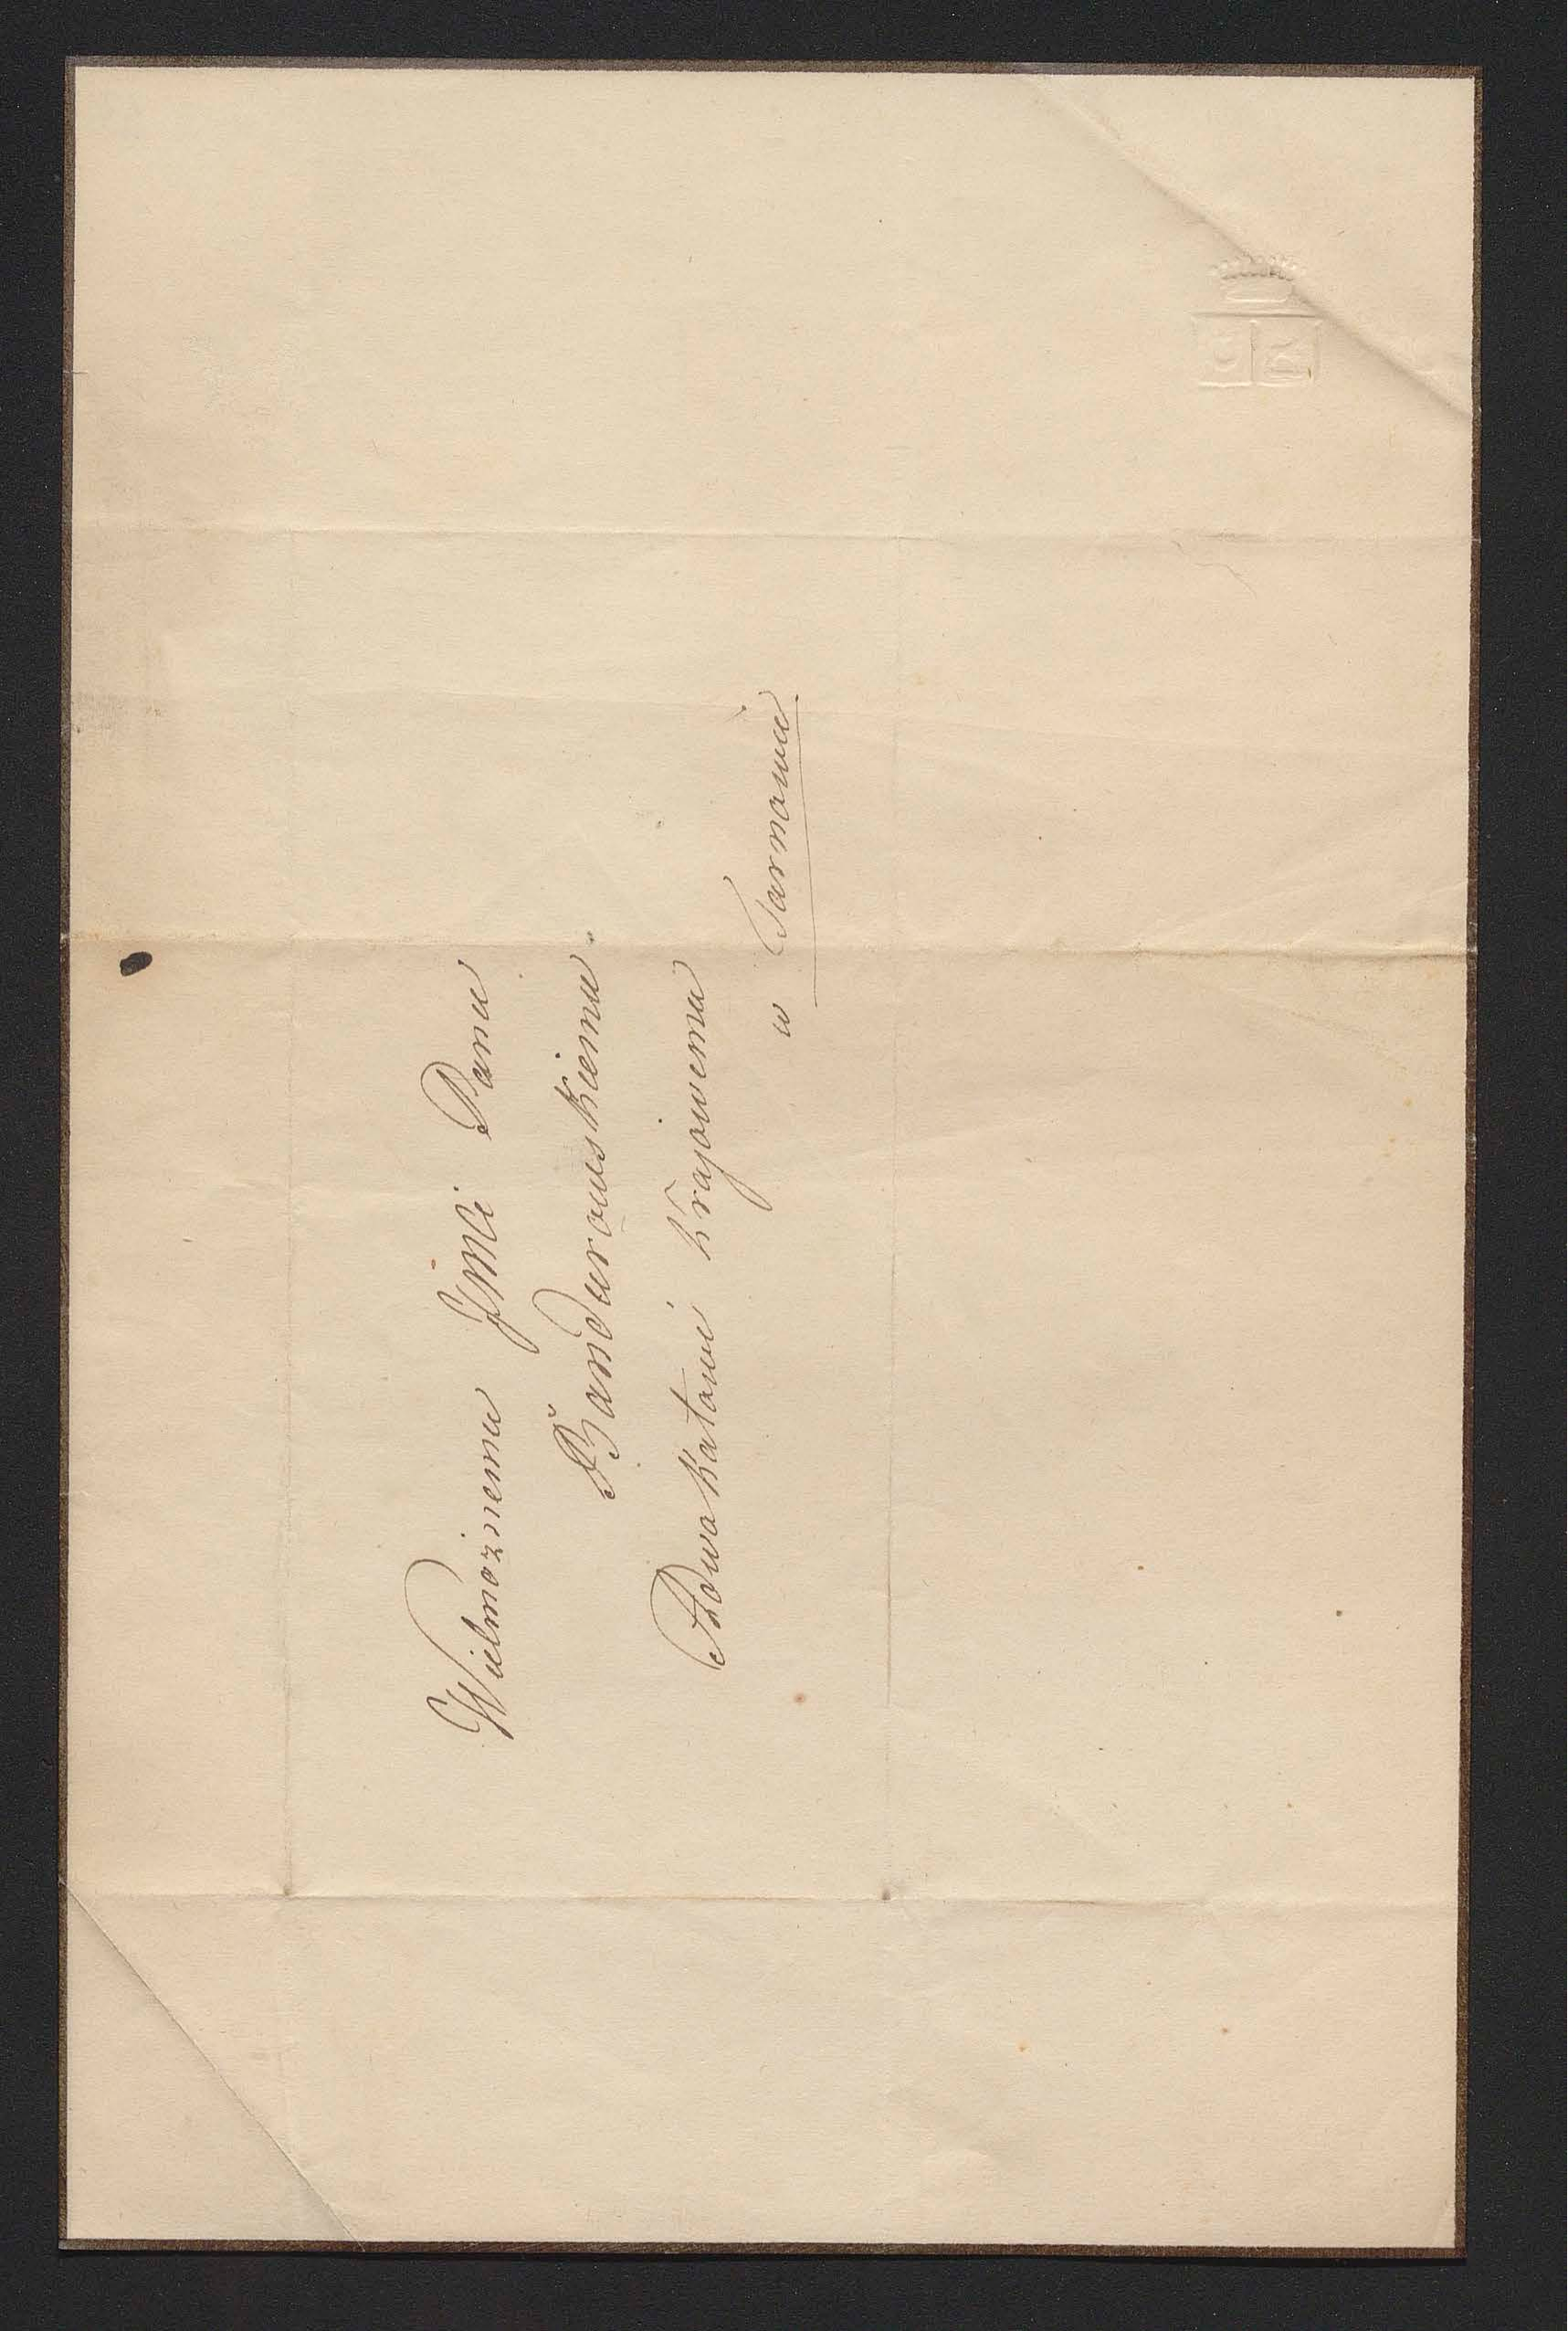 Wielmożnemu JMCi Panu
Bandurowskiemu.
Adwokatowi Krajowemu
w Tarnowie.